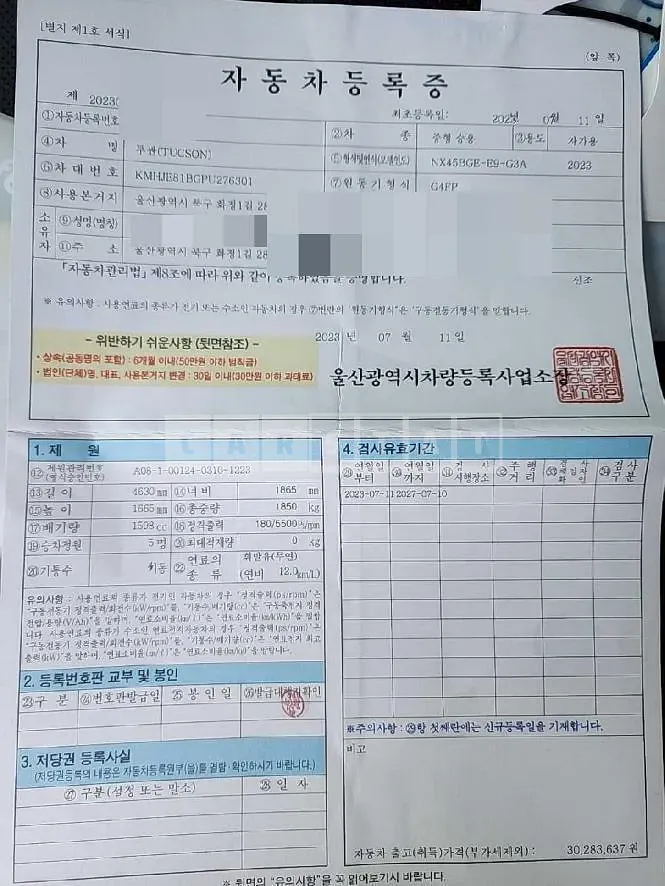 [별지 제1호 서식]
(앞 쪽)
자동차등록증
제 2023
최초등록일: 202 년 0 월 11 일
①자동차등록번호 ②차 종 중형 승용 ③용도 자가용
④차 명 투싼(TUCSON) 형식및연식 NX45BGE-E9-G3A 2023
⑥차대번호 KMHJE81BGPU276301 ⑦원동기형식 G4FP
⑧사용본거지 울산광역시 북구 화정1길 28
소유자 ⑨성명(명칭)
⑪주 소 울산광역시 북구 화정1길 28
「자동차관리법」 제8조에 따라 위와 같이
신조
※ 유의사항 : 사용연료의 종류가 전기 또는 수소인 자동차의 경우 ⑦번란의 '원동기형식'은 '구동전동기형식'을 말합니다.
2023 년 07 월 11 일
- 위반하기 쉬운사항 (뒷면참조) -
• 상속(공동명의 포함) : 6개월 이내(50만원 이하 범칙금)
• 법인(단체)명, 대표, 사용본거지 변경 : 30일 이내(30만원 이하 과태료)
울산광역시차량등록사업소장
1. 제 원
⑫제원관리번호 (형식승인번호) A08-1-00124-0310-1223
⑬길이 4630 mm ⑭너비 1865 mm
⑮높이 1665 mm ⑯총중량 1850 kg
⑰배기량 1598 cc ⑱정격출력 180/5500
⑲승차정원 5 명 ⑳최대적재량 0 kg
기통수 연료의 종류 휘발유(무연) (연비 12.0 km/L)
유의사항 : 사용연료의 종류가 전기인 자동차의 경우 "정격출력(ps/rpm)"은
"구동전동기 정격출력/회전수(kW/rpm)"를, "기통수·배기량(cc)"은 "구동축전지 정격
전압/용량(V/Ah)"을 말하며, "연료소비율(km/ℓ)"은 "연료소비율(km/kWh)"을 말합
니다. 사용연료의 종류가 수소인 연료전지자동차의 경우 "정격출력(ps/rpm)"는
"구동전동기 정격출력/회전수(kW/rpm)"를, "기통수/배기량(cc)"은 "연료전지 최고
출력(kW)"을 말하며,
2. 등록번호판 교부 및 봉인
구 분 번호판발급일 봉인일
3. 저당권 등록사실
(저당권등록의 내용은 자동차등록원부(을)를 열람·확인하시기 바랍니다.)
구분(설정 또는 말소) 일 자
4. 검사유효기간
연월일부터 연월일까지 검사시행장소 주행거리 검사구분
2023-07-11 2027-07-10
※주의사항 : ㉙항 첫째란에는 신규등록일을 기재합니다.
비고
자동차 출고(취득)가격(부가세제외) : 30,283,637 원
※ 뒷면의 "유의사항"을 꼭 읽어보시기 바랍니다.